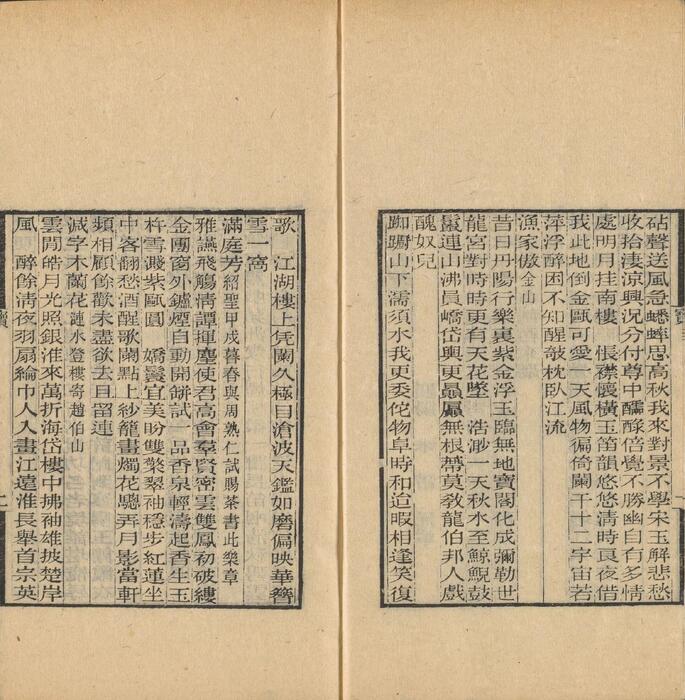 砧聲送風急蟠蟀思高秋我來對景不學宋玉解悲愁
收拾淒涼興況分付尊中醽醁倍覺不勝幽自有多情
處明月挂南樓　悵襟懷橫玉笛韻悠悠清時良夜借
我此地倒金甌可愛一天風物徧倚闌干十二宇宙若
萍浮醉困不知醒欹枕臥江流
漁家傲金山
昔日丹陽行樂裏紫金浮玉臨無地寶閣化成彌勒世
龍宮對時時更有天花墜　浩渺一天秋水至鯨鯢鼓
鬣連山沸員嶠岱輿更贔屭無根蔕莫敎龍伯邦人戲
醜奴兒
踟躕山下濡須水我更委佗物阜時和迨暇相逢笑復
歌　江湖樓上凭闌久極目滄波天鑑如磨偏映華簪
雪一窩
滿庭芳紹聖甲戌暮春與周熟仁試賜茶書此樂章
雅讌飛觴清譚揮麈使君高會羣賢密雲雙鳳初破縷
金團窗外鑪煙自動開餅試一品香泉輕濤起香生玉
杵雪濺紫甌圓　嬌鬟宜美盼雙擎翠袖穩步紅蓮坐
中客翻愁酒醒歌闌點上紗籠畫燭花驄弄月影當軒
頻相顧餘歡未盡欲去且留連
減字木蘭花漣水登樓寄趙伯山
雲閒皓月光照銀淮來萬折海岱樓中拂袖雄披楚岸
風　醉餘清夜羽扇綸巾人入畫江遠淮長舉首宗英